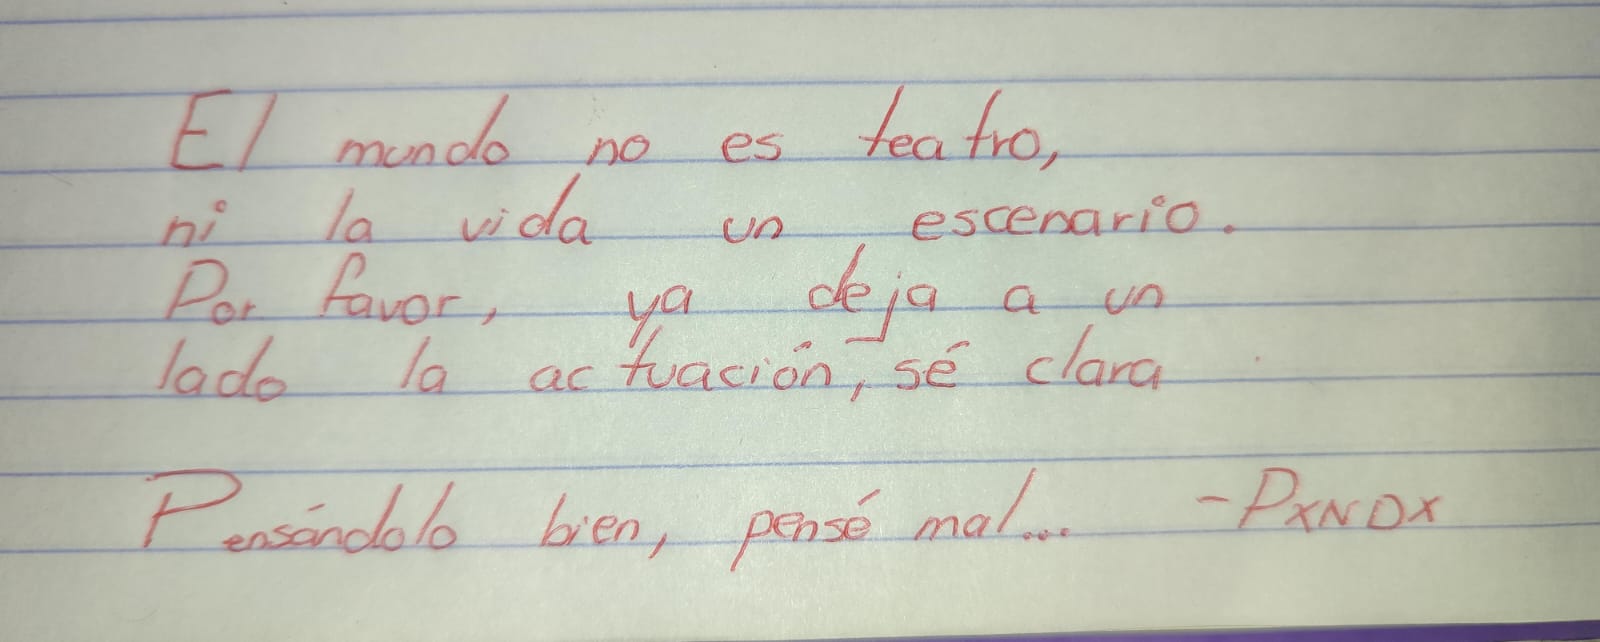 El mundo no es teatro,
ni la vida un escenario.
Por favor, ya deja a un
lado la actuación, sé clara
Pensándolo bien, pensé mal... -PXNDX